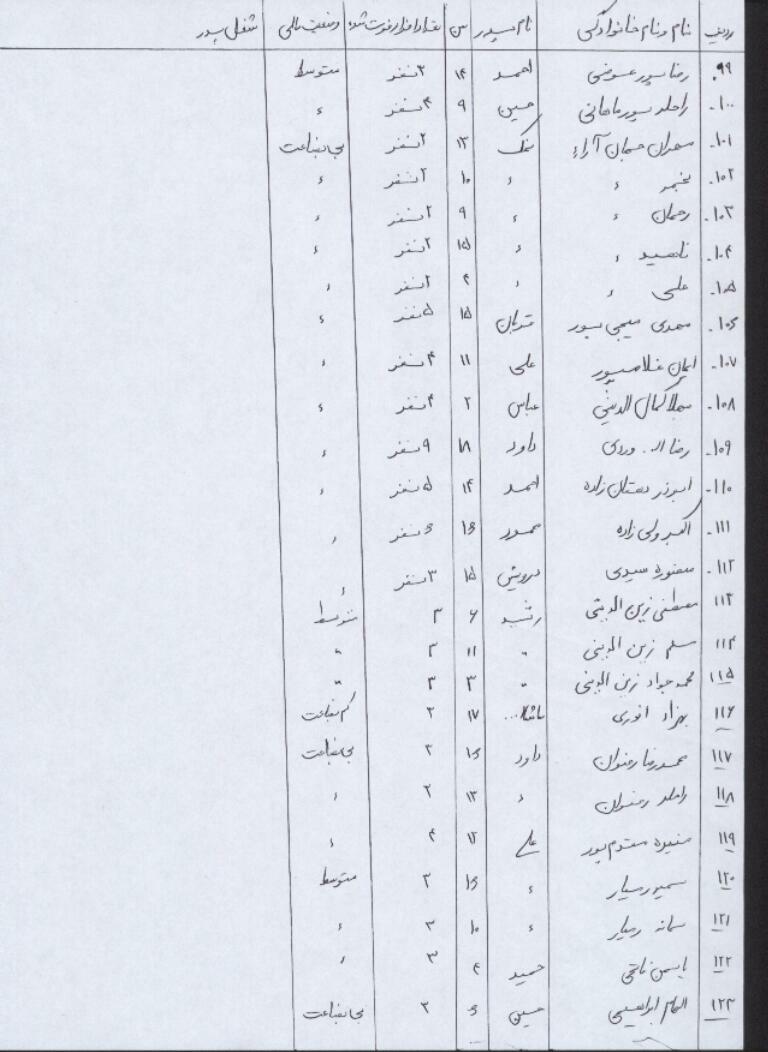 ردیف نام و نام خانوادگی نام پدر سن تعداد افراد فوت شده وضعیت مالی شغل پدر
۹۹. رضا پور عوضی احمد ۱۴ ۳نفر متوسط
۱۰۰. راحله پور ماهانی حسین ۹ ۴نفر 〃
۱۰۱. مهران جهان آراء ۱۳ ۲نفر بی بضاعت
۱۰۲. 〃 〃 ۱۰ ۲نفر 〃
۱۰۳. رحمان 〃 〃 ۹ ۲نفر 〃
۱۰۴. ناهید 〃 〃 ۱۵ ۲نفر 〃
۱۰۵. علی 〃 〃 ۴ ۲نفر 〃
۱۰۶. مهدی میجی پور قربان ۱۵ ۵نفر 〃
۱۰۷. ایمان غلامپور علی ۱۱ ۴نفر 〃
۱۰۸. کمال الدینی عباس ۲ ۴نفر 〃
۱۰۹. رضا اله وردی داود ۱۸ ۹نفر 〃
۱۱۰. ابوذر دهقان زاده احمد ۱۴ ۵نفر 〃
۱۱۱. اکبر ولی زاده محمود ۱۶ ۶نفر 〃
۱۱۲. معصومه سیدی درویش ۱۵ ۳نفر 〃
۱۱۳ مصطفی زین الدینی رشید ۶ ۳ متوسط
۱۱۴ مسلم زین الدینی 〃 ۱۱ ۳ 〃
۱۱۵ محمد جواد زین الدینی 〃 ۳ ۳ 〃
۱۱۶ بهزاد انوری ماشاا... ۱۷ ۲ کم بضاعت
۱۱۷ محمدرضا رضوان داود ۱۶ ۲ بی بضاعت
۱۱۸ راحله رضوان 〃 ۱۳ ۲ 〃
۱۱۹ منیره مقدم پور علی ۱۲ ۴ 〃
۱۲۰ سمیه رسیار 〃 ۱۶ ۳ متوسط
۱۲۱ سمانه رسیار 〃 ۱۰ ۳ 〃
۱۲۲ یاسمن حمید ۴ ۳ 〃
۱۲۳ الهام ابراهیمی حسین ۶ ۲ بی بضاعت